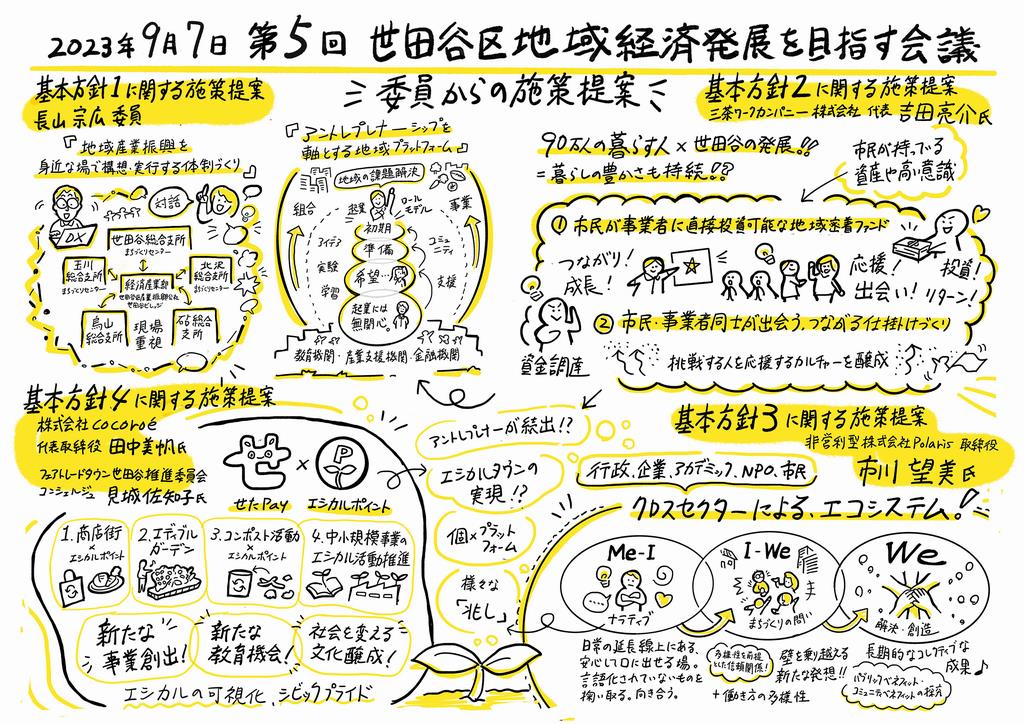 2023年9月7日 第5回 世田谷区地域経済発展を目指す会議
委員からの施策提案
基本方針1に関する施策提案
長山宗広 委員
『地域産業振興を
身近な場で構想・実行する体制づくり』
対話
DX
世田谷総合支所
まちづくりセンター
玉川
総合支所
まちづくりセンター
北沢
総合支所
まちづくりセンター
経済産業部
世田谷区産業振興公社
烏山
総合支所
現場
重視
砧総合
支所
『アントレプレナーシップを
軸とする地域プラットフォーム』
地域の課題解決
組合
起業
ロール
モデル
事業
初期
アイデア
準備
コミュ
ニティ
実験
希望…
学習
支援
起業には
無関心。
教育機関・産業支援機関・金融機関
基本方針2に関する施策提案
三茶ワークカンパニー株式会社 代表 吉田亮介氏
90万人の暮らす人×世田谷の発展!!
=暮らしの豊かさも持続!!?
市民が持っている
資産や高い意識
① 市民が事業者に直接投資可能な地域密着ファンド
つながり!
成長!
応援!
出会い!
投資!
リターン!
② 市民・事業者同士が出会う、つながる仕掛けづくり
資金調達
挑戦する人を応援するカルチャーを醸成
基本方針4に関する施策提案
株式会社cocoroé
代表取締役 田中美帆氏
フェアトレードタウン世田谷推進委員会
コンシェルジュ 見城佐知子氏
せ
×
P
せたPay
エシカルポイント
1.商店街
×
エシカルポイント
2.エディブル
ガーデン
3.コンポスト活動
×
エシカルポイント
4.中小規模事業の
エシカル活動推進
新たな
事業創出!
新たな
教育機会!
社会を変える
文化醸成!
エシカルの可視化、シビックプライド
アントレプレナーが続出!?
エシカルタウンの
実現!?
個×プラット
フォーム
様々な
「兆し」
基本方針3に関する施策提案
非営利型株式会社Polaris 取締役
市川 望美氏
行政、企業、アカデミック、NPO、市民
クロスセクターによる、エコシステム!
Me-I
ナラティブ
I-We
まちづくりの問い
We
解決・創造
日常の延長線上にある、
安心して口に出せる場。
言語化されていないものを
掬い取る。向き合う。
多様性を前提
とした信頼関係!
+働き方の多様性
壁を乗り越える
新たな発想!!
長期的なコレクティブな
成果♪
パブリックベネフィット・
コミュニティベネフィットの探究